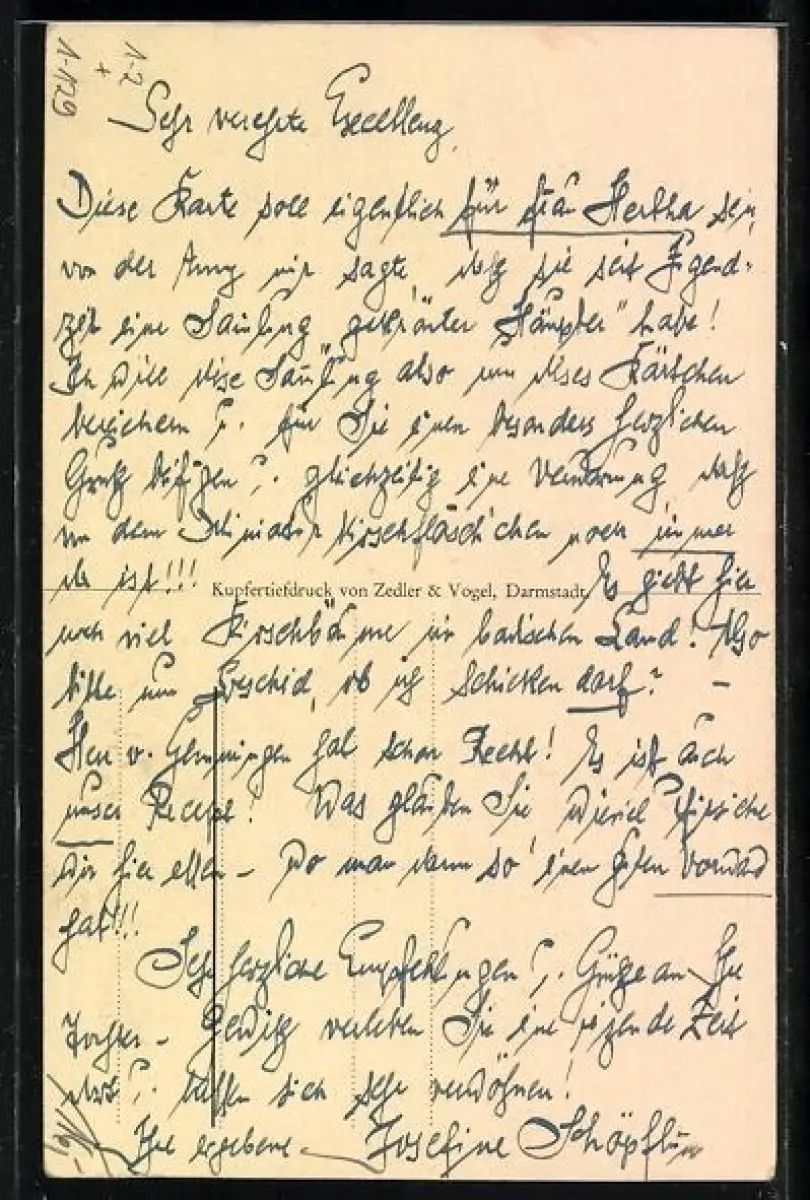 1-129
1-2
+
Sehr verehrte Excellenz,
Diese Karte soll eigentlich für Frau Hertha sein,
von der mir sagte, daß sie seit Jugend-
zeit eine Samlung "gekrönter Häupter" habe!
Ich will diese Samlung also um dieses Kärtchen
bereichern u. für Sie einen besonders herzlichen
Gruß beifügen u. gleichzeitig eine daß
dem Miniatur Kirschfläschchen noch immer
da ist!!! Es giebt hier
Kupfertiefdruck von Zedler & Vogel, Darmstadt.
noch viel Kirschbäume im badischen Land! Also
bitte um Bescheid, ob ich schicken darf? –
Herr v. Gemmingen hat schon Recht! Es ist auch
unser Recept! Was glauben Sie, wieviel Pfirsiche
wir hier essen – wo man dann so einen guten
hat!!!
Sehr herzliche Empfehlungen u. Grüße an Ihre
Tochter – Gewiß verleben Sie eine reizende Zeit
dort u. lassen sich sehr verwöhnen!
Ihre ergebene
Josefine Schöpflin